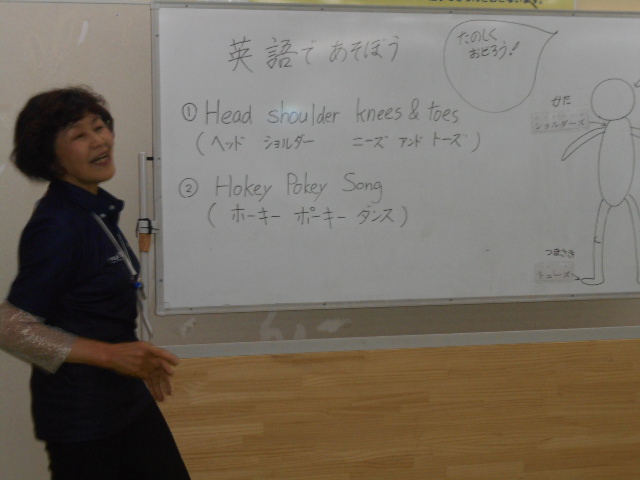 英語であそぼう
たのしく
おどろう!
① Head shoulder knees & toes
(ヘッド ショルダー ニーズ アンド トーズ)
② Hokey Pokey Song
(ホーキー ポーキー ダンス)
かた
ショルダーズ
つまさき
トゥーズ